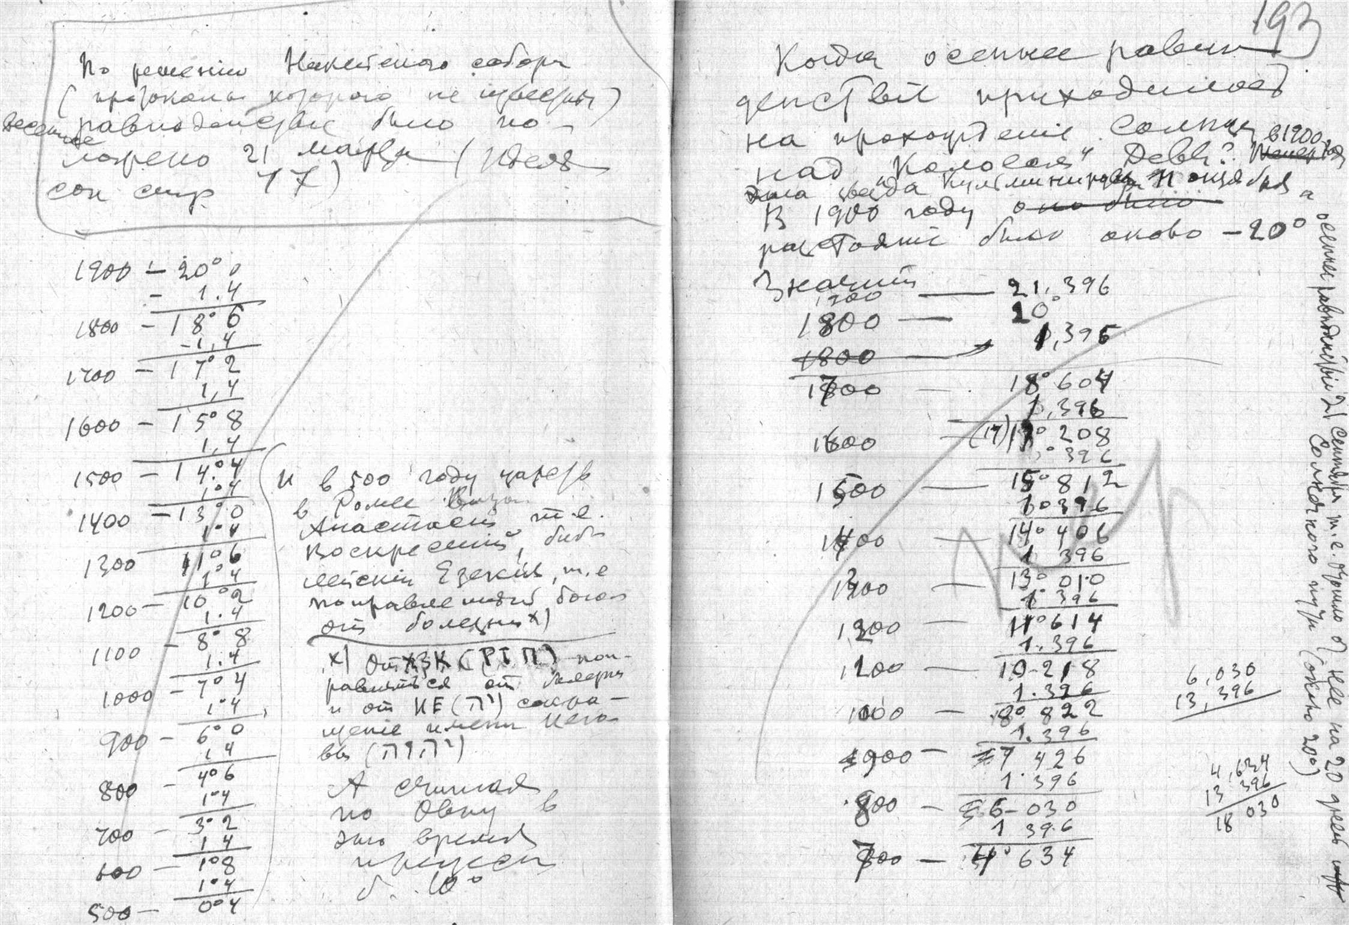 По решению Никейского собора
(протоколы которого не известны)
весеннее равноденствие было по-
ложено 21 марта (Иделя
сон стр. 17)
1900 – 20°0
– 1.4
1800 – 18°6
– 1,4
1700 – 17°2
1,4
1600 – 15°8
1,4
1500 – 14°4
1°4
1400 – 13°0
1°4
1300 11°6
1°4
1200 – 10°2
1.4
1100 – 8°8
1.4
1000 – 7°4
1°4
900 – 6°0
1 4
800 – 4°6
1°4
700 – 3°2
1 4
600 – 1°8
1°4
500 – 0°4
И в 500 году царств
в Ромее
Анастасий т.е.
воскресший, библ
лейский Езекия, т.е
поправленный богом
от болезни x)
x) От ХЗК (РТП) поп-
равляться от болезни
и от ИЕ (יה) сокра-
щение имени Иего-
вы (יהוה)
А считая
по Овну в
это время
б. 10°
193
Когда осеннее равно
денствие приходилось
на прохождение Солнца
над "Колосом" Девы? в 1900
эта звезда кульминировала 11 октября
В 1900 году оно было а
расстояние было около – 20°
Значит
1900 — 21,396
1800 — 20°
1800 — 1,396
1700 — 18°604
1,396
1600 – (17) 17°208
1°396
1500 — 15°812
1°396
1400 — 14°406
1 396
1300 — 13°010
1°396
1200 — 11°614
1.396
1100 — 10-218
1.396
1000 — 8°822
1.396
900 – 7 426
1 396
800 – 6-030
1 396
700 – 4°634
6,030
13,396
4,634
13 396
18 030
осеннее равноденствие 21 сентября т.е. Солнце б. не на 20 дней
Солнечного пути (около 20°)